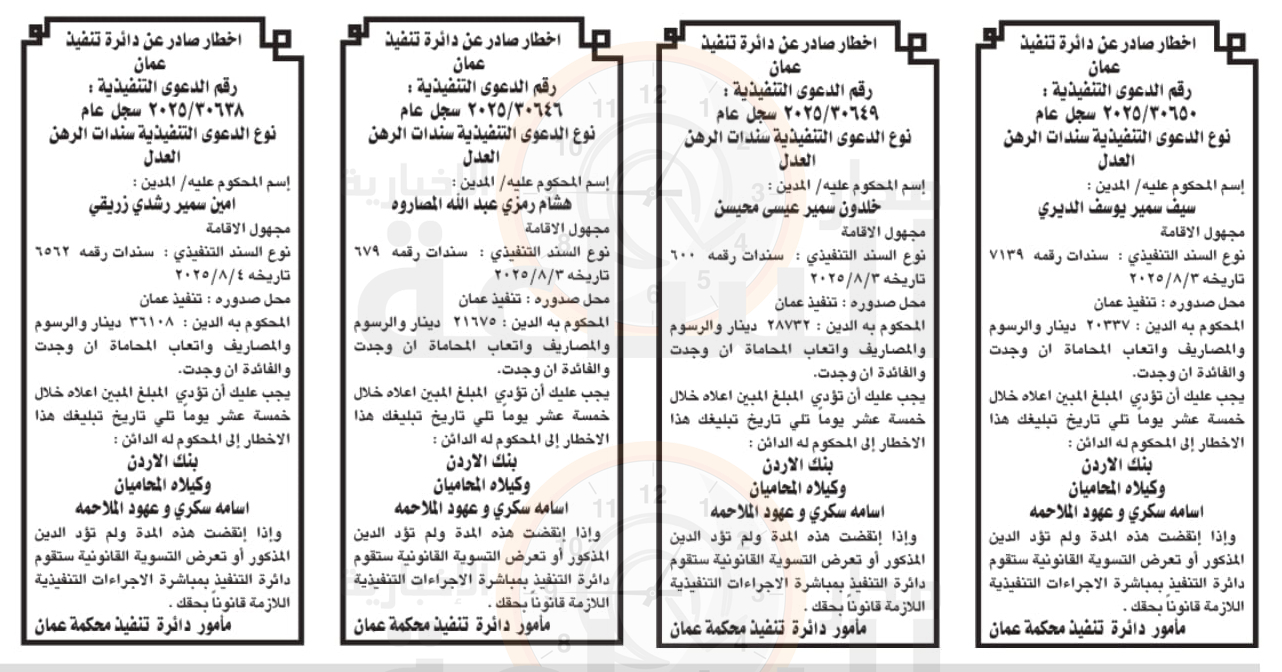 اخطار صادر عن دائرة تنفيذ
عمان
رقم الدعوى التنفيذية :
٢٠٢٥/٣٠٦٥٠ سجل عام
نوع الدعوى التنفيذية سندات الرهن
العدل
إسم المحكوم عليه/ المدين :
سيف سمير يوسف الديري
مجهول الاقامة
نوع السند التنفيذي : سندات رقمه ٧١٣٩
تاريخه ٢٠٢٥/٨/٣
محل صدوره : تنفيذ عمان
المحكوم به الدين : ٢٠٣٣٧ دينار والرسوم
والمصاريف واتعاب المحاماة ان وجدت
والفائدة ان وجدت.
يجب عليك أن تؤدي المبلغ المبين اعلاه خلال
خمسة عشر يوماً تلي تاريخ تبليغك هذا
الاخطار إلى المحكوم له الدائن :
بنك الاردن
وكيلاه المحاميان
اسامه سكري و عهود الملاحمه
وإذا إنقضت هذه المدة ولم تؤد الدين
المذكور أو تعرض التسوية القانونية ستقوم
دائرة التنفيذ بمباشرة الاجراءات التنفيذية
اللازمة قانوناً بحقك .
مأمور دائرة تنفيذ محكمة عمان
اخطار صادر عن دائرة تنفيذ
عمان
رقم الدعوى التنفيذية :
٢٠٢٥/٣٠٦٤٩ سجل عام
نوع الدعوى التنفيذية سندات الرهن
العدل
إسم المحكوم عليه/ المدين :
خلدون سمير عيسى محيسن
مجهول الاقامة
نوع السند التنفيذي : سندات رقمه ٦٠٠
تاريخه ٢٠٢٥/٨/٣
محل صدوره : تنفيذ عمان
المحكوم به الدين : ٢٨٧٣٢ دينار والرسوم
والمصاريف واتعاب المحاماة ان وجدت
والفائدة ان وجدت.
يجب عليك أن تؤدي المبلغ المبين اعلاه خلال
خمسة عشر يوماً تلي تاريخ تبليغك هذا
الاخطار إلى المحكوم له الدائن :
بنك الاردن
وكيلاه المحاميان
اسامه سكري و عهود الملاحمه
وإذا إنقضت هذه المدة ولم تؤد الدين
المذكور أو تعرض التسوية القانونية ستقوم
دائرة التنفيذ بمباشرة الاجراءات التنفيذية
اللازمة قانوناً بحقك .
مأمور دائرة تنفيذ محكمة عمان
اخطار صادر عن دائرة تنفيذ
عمان
رقم الدعوى التنفيذية :
٢٠٢٥/٣٠٦٤٦ سجل عام
نوع الدعوى التنفيذية سندات الرهن
العدل
إسم المحكوم عليه/ المدين :
هشام رمزي عبد الله المصاروه
مجهول الاقامة
نوع السند التنفيذي : سندات رقمه ٦٧٩
تاريخه ٢٠٢٥/٨/٣
محل صدوره : تنفيذ عمان
المحكوم به الدين : ٢١٦٧٥ دينار والرسوم
والمصاريف واتعاب المحاماة ان وجدت
والفائدة ان وجدت.
يجب عليك أن تؤدي المبلغ المبين اعلاه خلال
خمسة عشر يوماً تلي تاريخ تبليغك هذا
الاخطار إلى المحكوم له الدائن :
بنك الاردن
وكيلاه المحاميان
اسامه سكري و عهود الملاحمه
وإذا إنقضت هذه المدة ولم تؤد الدين
المذكور أو تعرض التسوية القانونية ستقوم
دائرة التنفيذ بمباشرة الاجراءات التنفيذية
اللازمة قانوناً بحقك .
مأمور دائرة تنفيذ محكمة عمان
اخطار صادر عن دائرة تنفيذ
عمان
رقم الدعوى التنفيذية :
٢٠٢٥/٣٠٦٣٨ سجل عام
نوع الدعوى التنفيذية سندات الرهن
العدل
إسم المحكوم عليه/ المدين :
امين سمير رشدي زريقي
مجهول الاقامة
نوع السند التنفيذي : سندات رقمه ٦٥٦٢
تاريخه ٢٠٢٥/٨/٤
محل صدوره : تنفيذ عمان
المحكوم به الدين : ٣٦١٠٨ دينار والرسوم
والمصاريف واتعاب المحاماة ان وجدت
والفائدة ان وجدت.
يجب عليك أن تؤدي المبلغ المبين اعلاه خلال
خمسة عشر يوماً تلي تاريخ تبليغك هذا
الاخطار إلى المحكوم له الدائن :
بنك الاردن
وكيلاه المحاميان
اسامه سكري و عهود الملاحمه
وإذا إنقضت هذه المدة ولم تؤد الدين
المذكور أو تعرض التسوية القانونية ستقوم
دائرة التنفيذ بمباشرة الاجراءات التنفيذية
اللازمة قانوناً بحقك .
مأمور دائرة تنفيذ محكمة عمان